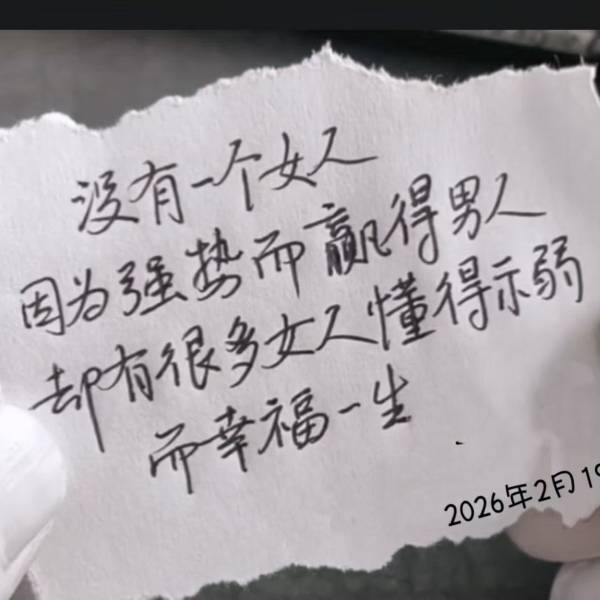 没有一个女人
因为强势而赢得男人
却有很多女人懂得示弱
而幸福一生
2026年2月19